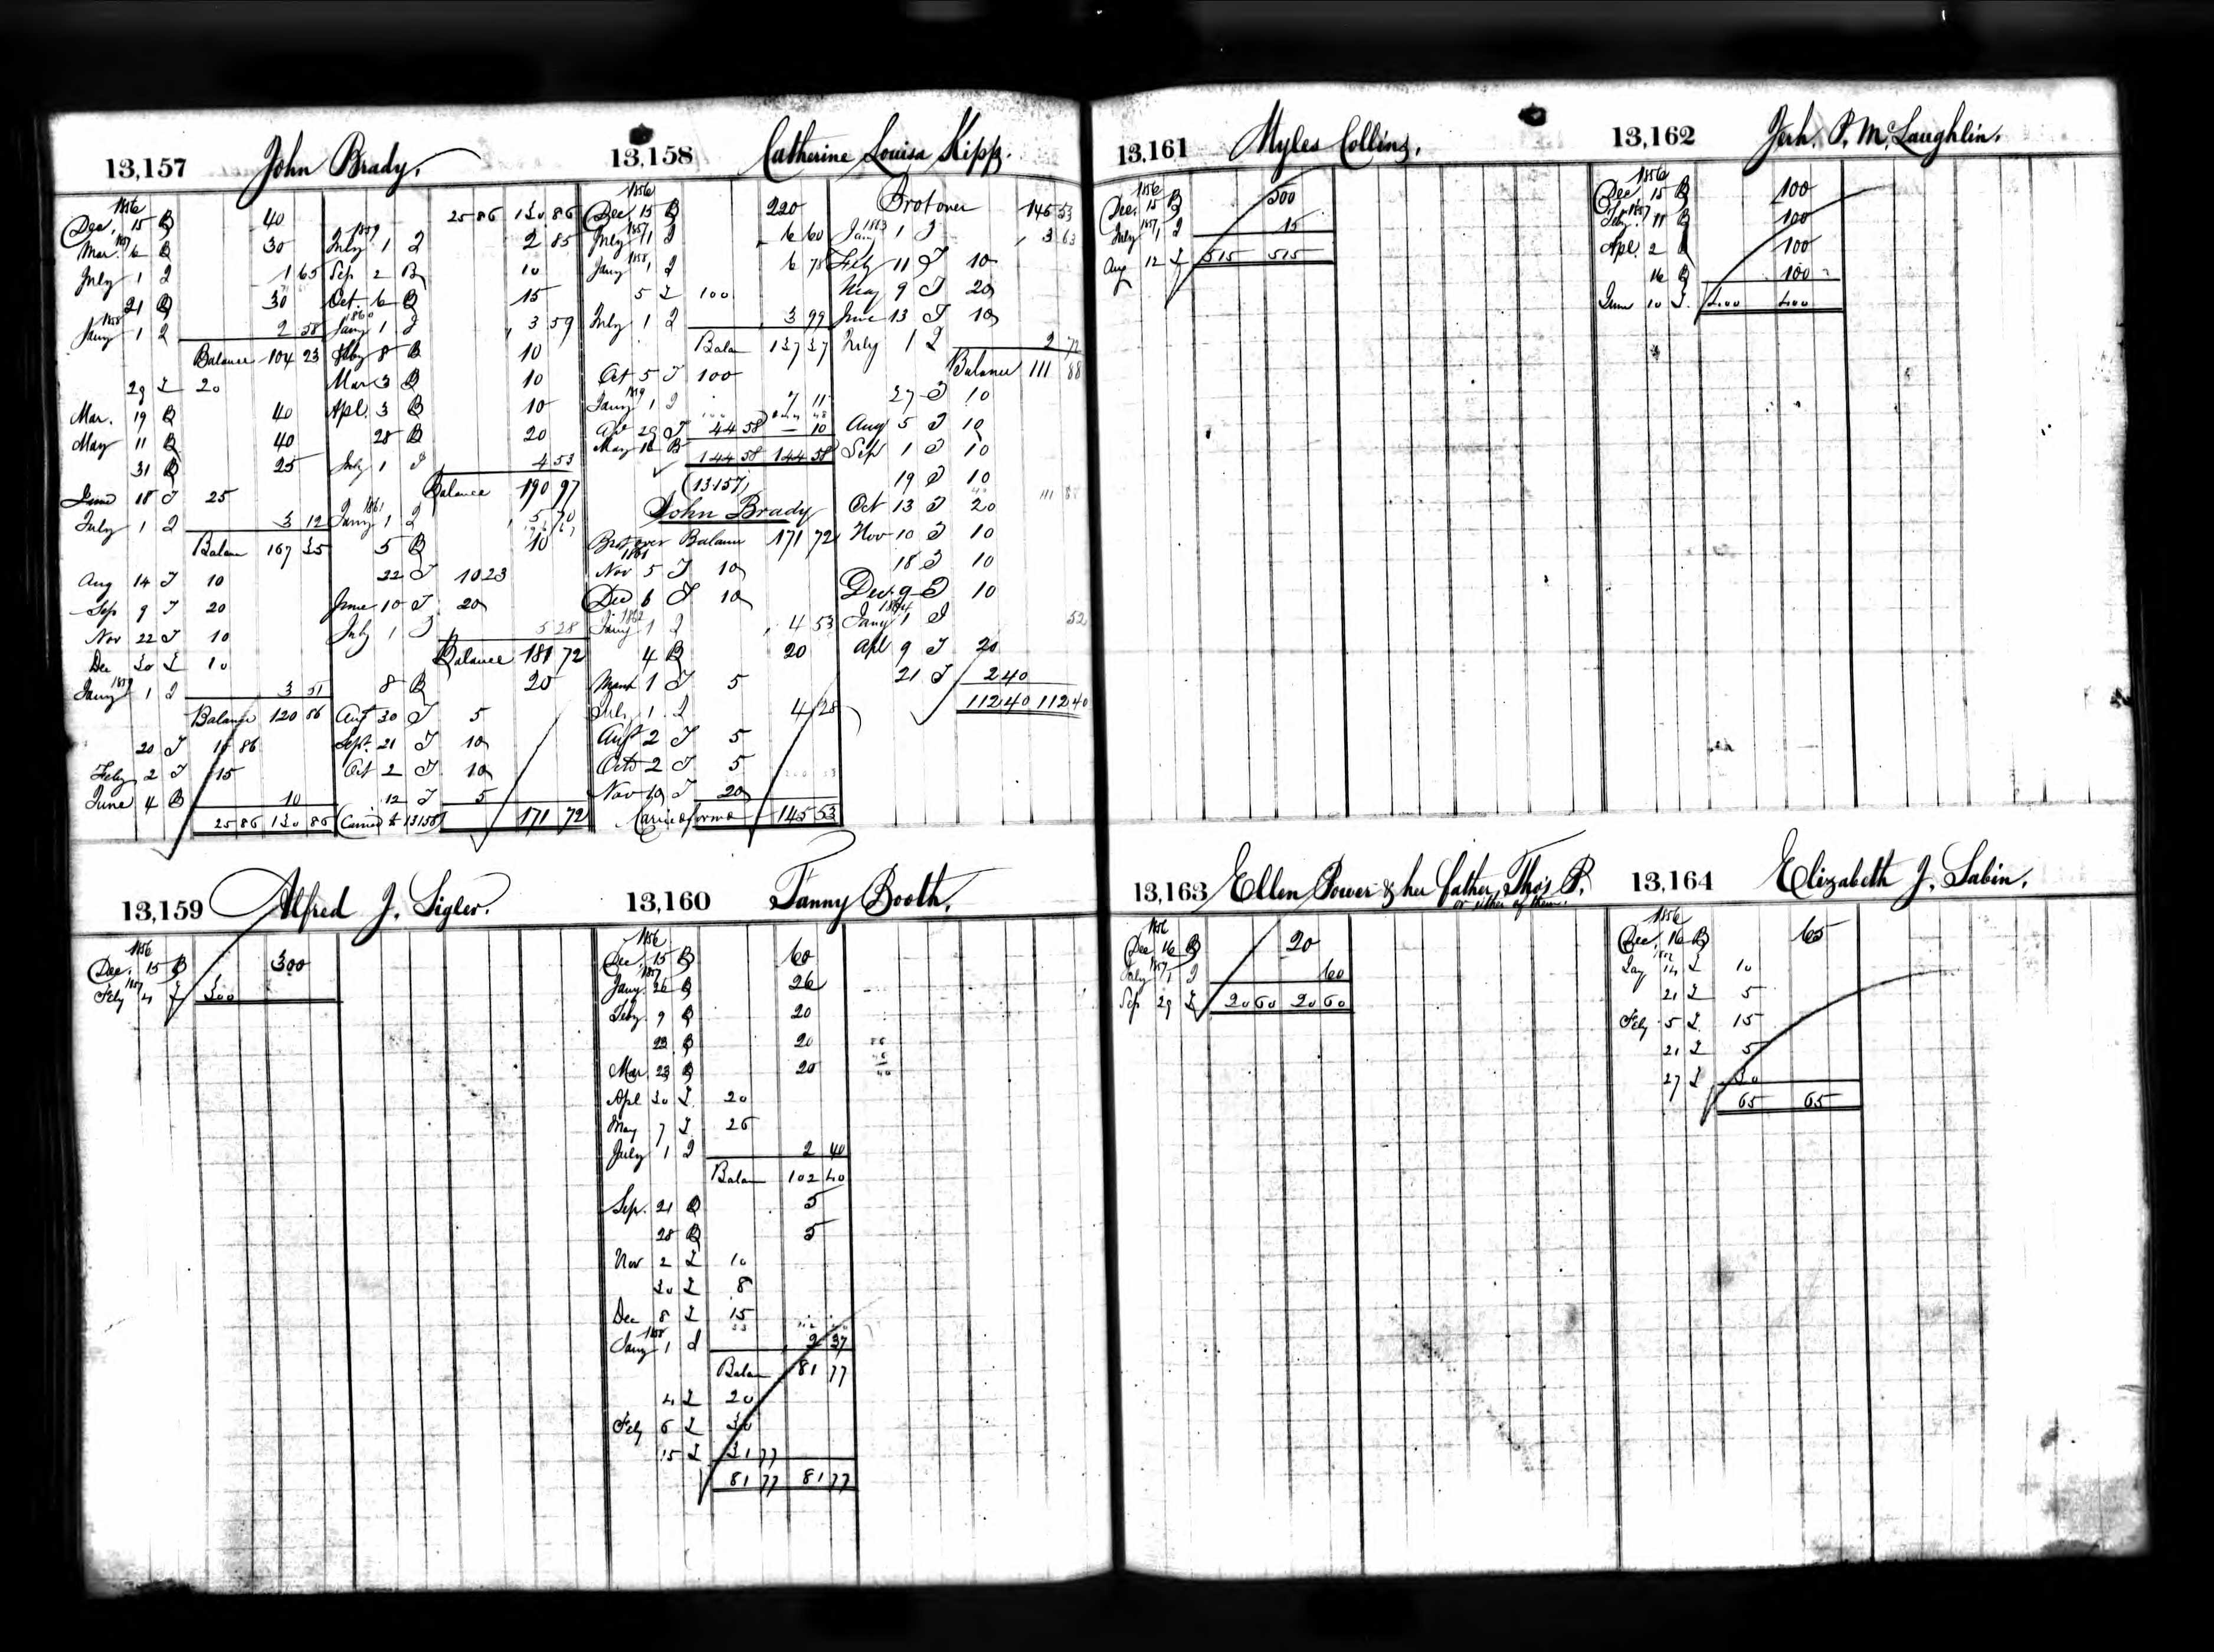 13,157 John Brady.
1856
Dec. 15 B 40
1857
Mar. 6 B 30
July 1 I 1 65
21 B 30
1858
Jany 1 I 2 58
Balance 104 23
29 T 20
Mar. 19 B 40
May 11 B 40
31 B 25
June 18 T 25
July 1 I 3 12
Balan 167 35
Aug 14 T 10
Sep 9 T 20
Nov 22 T 10
Dec 30 T 10
1859
Jany 1 I 3 51
Balance 120 86
20 T 10 86
Feby 2 T 15
June 4 B 10
25 86 130 86
25 86 130 86
1859
July 1 I 2 85
Sep 2 B 10
Oct. 6 B 15
1860
Jany 1 I 3 59
Feby 8 B 10
Mar 3 B 10
Apl. 3 B 10
28 B 20
July 1 I 4 53
Balance 190 97
1861
Jany 1 I 5 70
5 B 10
22 T 10 23
June 10 T 20
July 1 I 5 28
Balance 181 72
8 B 20
Aug 30 T 5
Sept. 21 T 10
Oct 2 T 10
12 T 5
Carried to 13158 171 72
13,158 Catherine Louisa Kipp.
1856
Dec. 15 B 220
1857
July 1 I 6 60
1858
Jany 1 I 6 78
5 T 100
July 1 I 3 99
Balan 137 37
Oct 5 T 100
1859
Jany 1 I 7 11
Apl 29 T 44 58
May 16 B 10
144 58 144 58
(13157)
John Brady
Brot over Balance 171 72
1861
Nov 5 T 10
Dec 6 T 10
1862
Jany 1 I 4 53
4 B 20
March 1 T 5
July 1 I 4 28
Augt 2 T 5
Octo 2 T 5
Nov 10 T 20
Carried forwd 145 53
Brot over 145 53
1863
Jany 1 I 3 63
Feby 11 T 10
May 9 T 20
June 13 T 10
July 1 I 2 72
Balance 111 88
27 T 10
Aug 5 T 10
Sept 1 T 10
19 T 10
Oct 13 T 20
Nov 10 T 10
18 T 10
Dec. 9 T 10
1864
Jany 1 I 52
Apl 9 T 20
21 T 2 40
112 40 112 40
13,159 Alfred J. Sigler.
1856
Dec. 15 B 300
1857
Feby 4 T 300
13,160 Fanny Booth.
1856
Dec. 15 B 60
1857
Jany. 26 B 26
Feby. 9 B 20
23 B 20
Mar. 23 B 20
Apl 30 T 20
May 7 T 26
July 1 I 2 40
Balan 102 40
Sep. 21 B 5
28 B 5
Nov 2 T 10
30 T 8
Dec 8 T 15
1858
Jany 1 I 2 37
Balan 81 77
4 T 20
Feby 6 T 30
15 T 31 77
81 77 81 77
13,161 Myles Collins.
1856
Dec. 15 B 500
1857
July 1 I 15
Aug 12 T 515 515
13,162 Jerh. P. McLaughlin.
1856
Dec. 15 B 100
1857
Feby. 11 B 100
Apl. 2 B 100
16 B 100
June 10 T. 400 400
13,163 Ellen Power & her father, Thos P.
or either of them.
1856
Dec 16 B 20
1857
July 1 I 60
Sep 29 T 20 60 20 60
13,164 Elizabeth J. Sabin.
1856
Dec. 16 B 65
1857
Jay 14 T 10
21 T 5
Feby 5 T 15
21 T 5
27 T 30
65 65